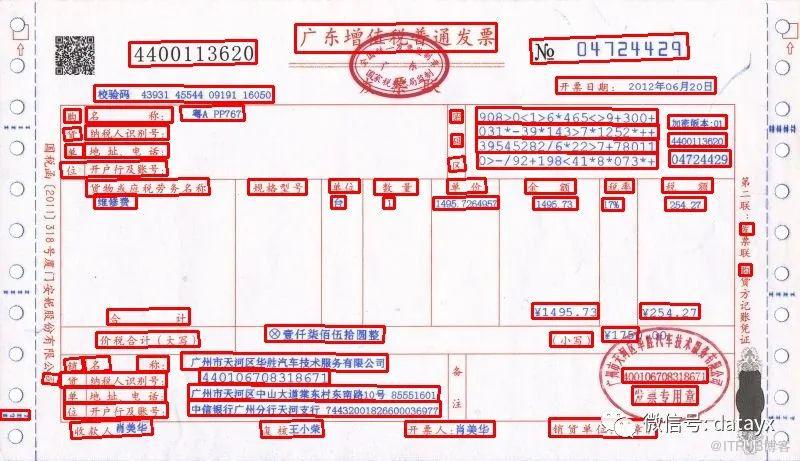 4400113620
广东增值税普通发票
№ 04724429
校验码 43931 45544 09191 16050
开票日期： 2012年06月20日
购 名 称： 粤A PP767
货 纳税人识别号：
单 地址、电话：
位 开户行及账号：
密
区
908>0<1>6*465<>9+300+
031*-39*143>7*1252*++
39545282/6*22>7+78011
0>-/92+198<41*8*073*+
加密版本:01
4400113620
04724429
货物或应税劳务名称 规格型号 单位 数量 单价 金额 税率 税额
维修费 台 1 1495.7264957 1495.73 17% 254.27
合 计 ¥1495.73 ¥254.27
价税合计（大写） ⊗壹仟柒佰伍拾圆整 （小写）
销 名 称： 广州市天河区华胜汽车技术服务有限公司
货 纳税人识别号： 440106708318671
单 地址、电话： 广州市天河区中山大道棠东村东南路10号 85551601
位 开户行及账号： 中信银行广州分行天河支行 7443200182660003697​7
备注
广州市天河区华胜汽车技术服务有限公司
440106708318671
发票专用章
收款人 肖美华 复核 王小荣 开票人： 肖美华 销货单位
国税函[2011]318号厦门安妮股份有限公司
第二联：发票联 购货方记账凭证
微信号: datayx
@ITPUB博客